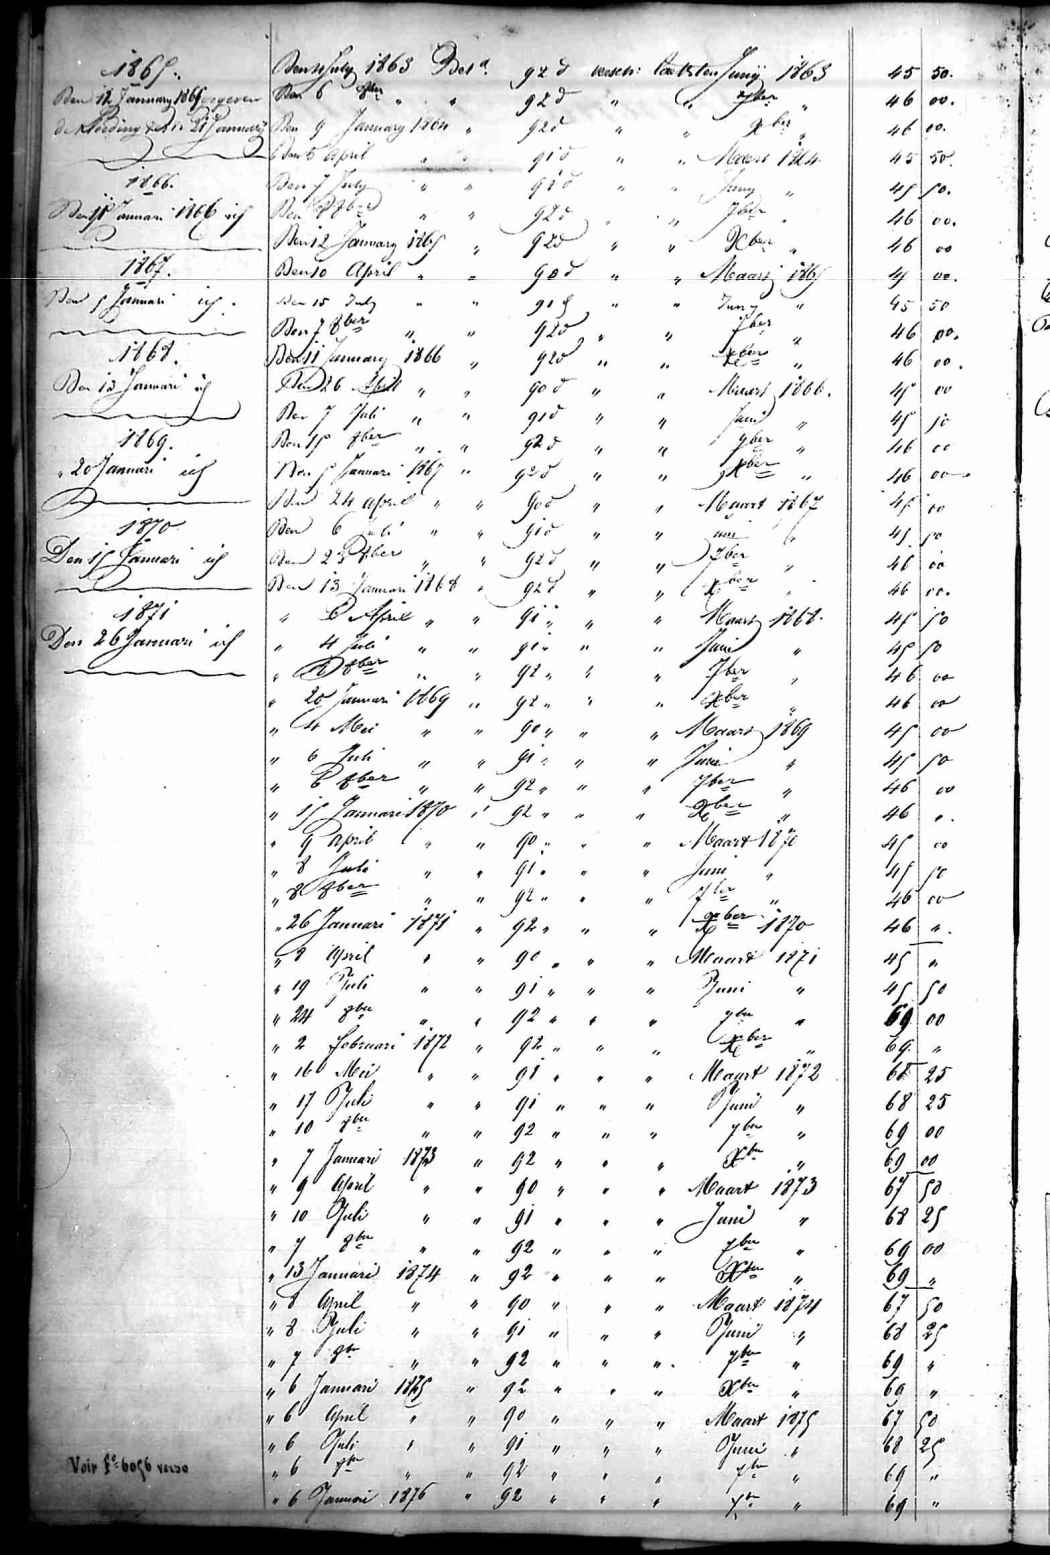 1865.
Den 12 January 1865 gegeven
de kleeding 21 January
1866.
Den 11 Januari 1866 ich
1867.
Den 5 Januari ich.
1868.
Den 13 Januari ich
1869.
" 20 Januari ich
1870
Den 15 Januari ich
1871
Den 26 Januari ich
Voir f° 6056 verso
Den July 1863 Bet. 92 d versch: laatsten Juny 1863 45 50.
Den 6 8ber " " 92 d " " 7ber " 46 00.
Den 9 January 1864 " 92 d " " Xber " 46 00.
Den 8 April " " 91 d " " Maart 1864 45 50.
Den 7 July " " 91 d " " Juny " 45 50.
Den 8ber " " 92 d " " 7ber " 46 00.
Den 12 January 1865 " 92 d " " Xber " 46 00
Den 10 April " " 90 d " " Maart 1865 45 00.
Den 15 July " " 91 d " " Juny " 45 50
Den 7 8ber " " 92 d " " 7ber " 46 00.
Den 11 January 1866 " 92 d " " Xber " 46 00.
Den 26 April " " 90 d " " Maart 1866. 45 00
Den 7 Juli " " 91 d " " Juni " 45 50
Den 15 8ber " " 92 d " " 7ber " 46 00
Den 5 Januari 1867 " 92 d " " Xber " 46 00
Den 24 April " " 90 d " " Maart 1867 45 00
Den 6 Juli " " 91 d " " Juni " 45 50
Den 23 8ber " " 92 d " " 7ber " 46 00
Den 13 Januari 1868 " 92 d " " Xber " 46 00.
" 8 April " " 91 " " " Maart 1868. 45 50
" 4 Juli " " 91 " " " Juni " 45 50
" 8ber " " 92 " " " 7ber " 46 00
" 20 Januari 1869 " 92 " " " Xber " 46 00
" 4 Mei " " 90 " " " Maart 1869 45 00
" 6 Juli " " 91 " " " Juni " 45 50
" 8 8ber " " 92 " " " 7ber " 46 00
" 15 Januari 1870 " 92 " " " Xber " 46 "
" 9 April " " 90 " " " Maart 1870 45 00
" 8 Juli " " 91 " " " Juni " 45 50
" 8 8ber " " 92 " " " 7ber " 46 00
" 26 Januari 1871 " 92 " " " Xber 1870 46 "
" 8 April " " 90 " " " Maart 1871 45 "
" 19 Juli " " 91 " " " Juni " 45 50
" 24 8ber " " 92 " " " 7ber " 69 00
" 2 februari 1872 " 92 " " " Xber " 69 "
" 16 Mei " " 91 " " " Maart 1872 68 25
" 17 Juli " " 91 " " " Juni " 68 25
" 10 8ber " " 92 " " " 7ber " 69 00
" 7 Januari 1873 " 92 " " " Xber " 69 00
" 9 April " " 90 " " " Maart 1873 67 50
" 10 Juli " " 91 " " " Juni " 68 25
" 7 8ber " " 92 " " " 7ber " 69 00
" 13 Januari 1874 " 92 " " " Xber " 69 "
" 8 April " " 90 " " " Maart 1874 67 50
" 8 Juli " " 91 " " " Juni " 68 25
" 7 8br " " 92 " " " 7ber " 69 "
" 6 Januari 1875 " 92 " " " Xber " 69 "
" 6 April " " 90 " " " Maart 1875 67 50
" 6 Juli " " 91 " " " Juni " 68 25
" 6 8br " " 92 " " " 7br " 69 "
" 6 Januari 1876 " 92 " " " Xbr " 69 "